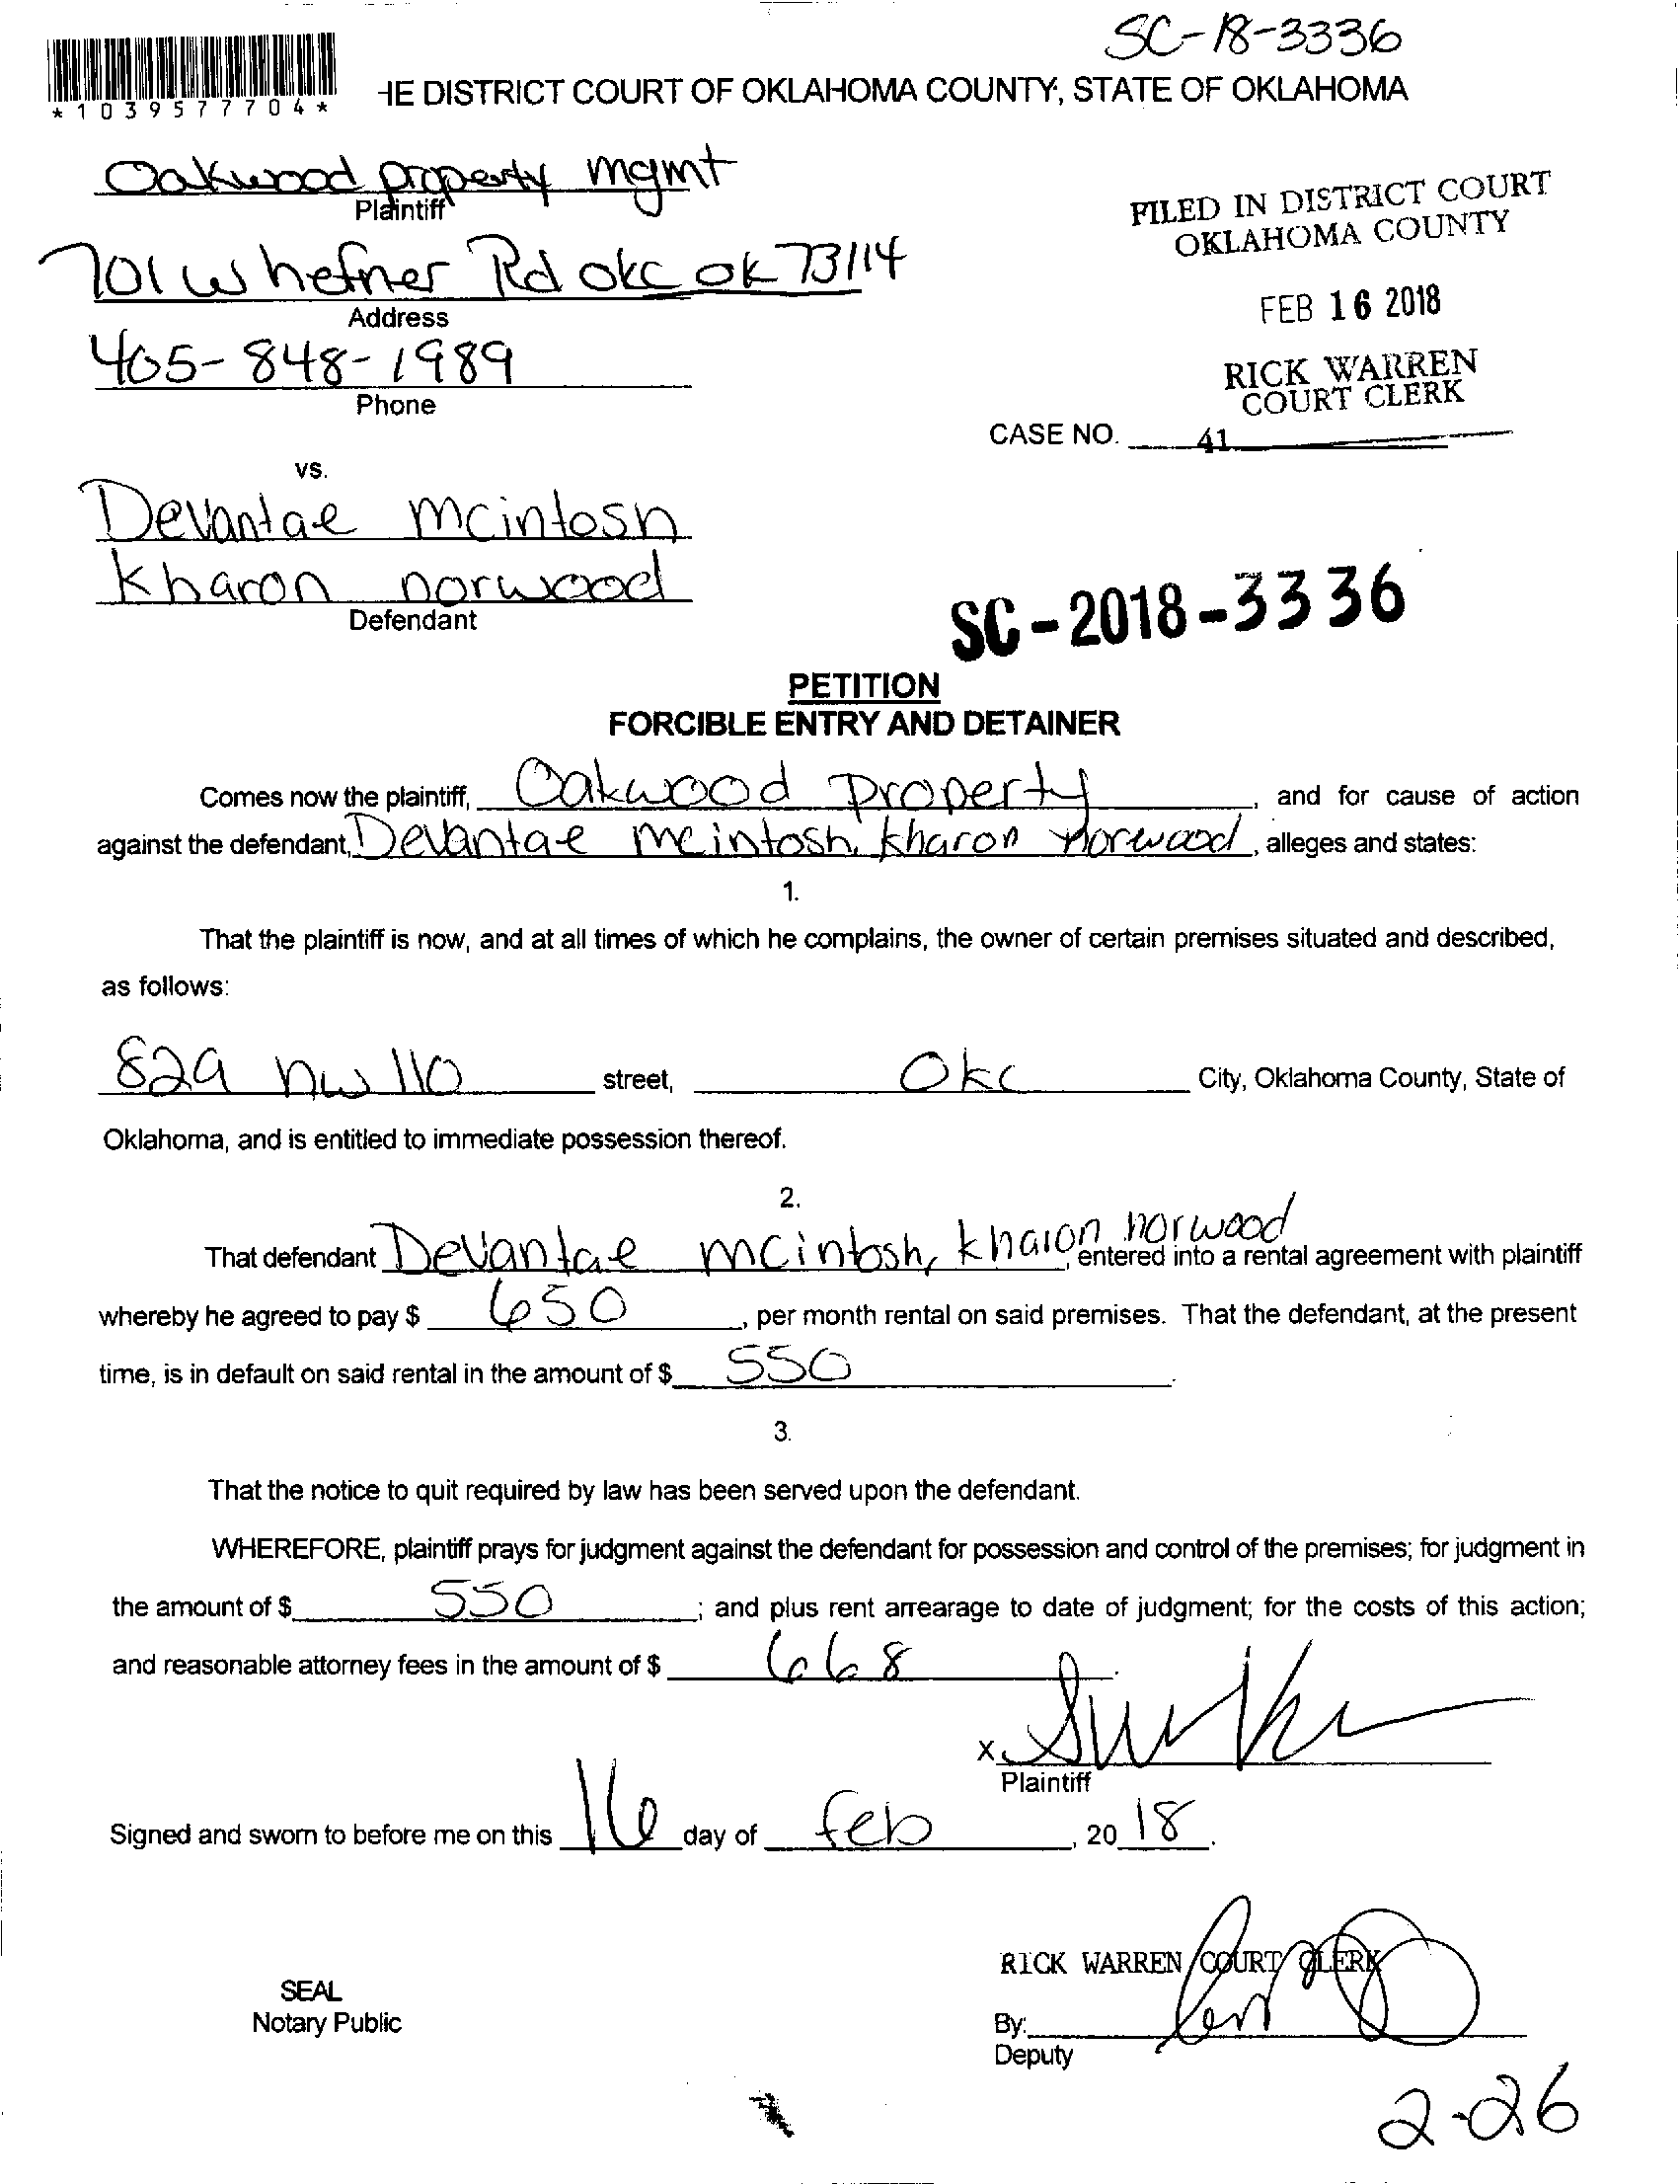 SC-18-3336
*1039577704*
HE DISTRICT COURT OF OKLAHOMA COUNTY, STATE OF OKLAHOMA
Oakwood property mgmt
Plaintiff
FILED IN DISTRICT COURT
OKLAHOMA COUNTY
701 W hefner Rd okc ok 73114
Address
FEB 16 2018
405-848-1989
Phone
RICK WARREN
COURT CLERK
CASE NO. 41
vs.
Devantae mcintosh
kharon norwood
Defendant
SC-2018-3336
PETITION
FORCIBLE ENTRY AND DETAINER
Comes now the plaintiff, Oakwood Property, and for cause of action
against the defendant, Devantae mcintosh, kharon norwood, alleges and states:
1.
That the plaintiff is now, and at all times of which he complains, the owner of certain premises situated and described,
as follows:
829 nw 110 street, Okc City, Oklahoma County, State of
Oklahoma, and is entitled to immediate possession thereof.
2.
That defendant Devantae mcintosh, kharon norwood, entered into a rental agreement with plaintiff
whereby he agreed to pay $ 650, per month rental on said premises. That the defendant, at the present
time, is in default on said rental in the amount of $ 550.
3.
That the notice to quit required by law has been served upon the defendant.
WHEREFORE, plaintiff prays for judgment against the defendant for possession and control of the premises; for judgment in
the amount of $ 550; and plus rent arrearage to date of judgment; for the costs of this action;
and reasonable attorney fees in the amount of $ 668.
x
Plaintiff
Signed and sworn to before me on this 16 day of feb, 2018.
RICK WARREN COURT CLERK
SEAL
Notary Public
By:
Deputy
2-26